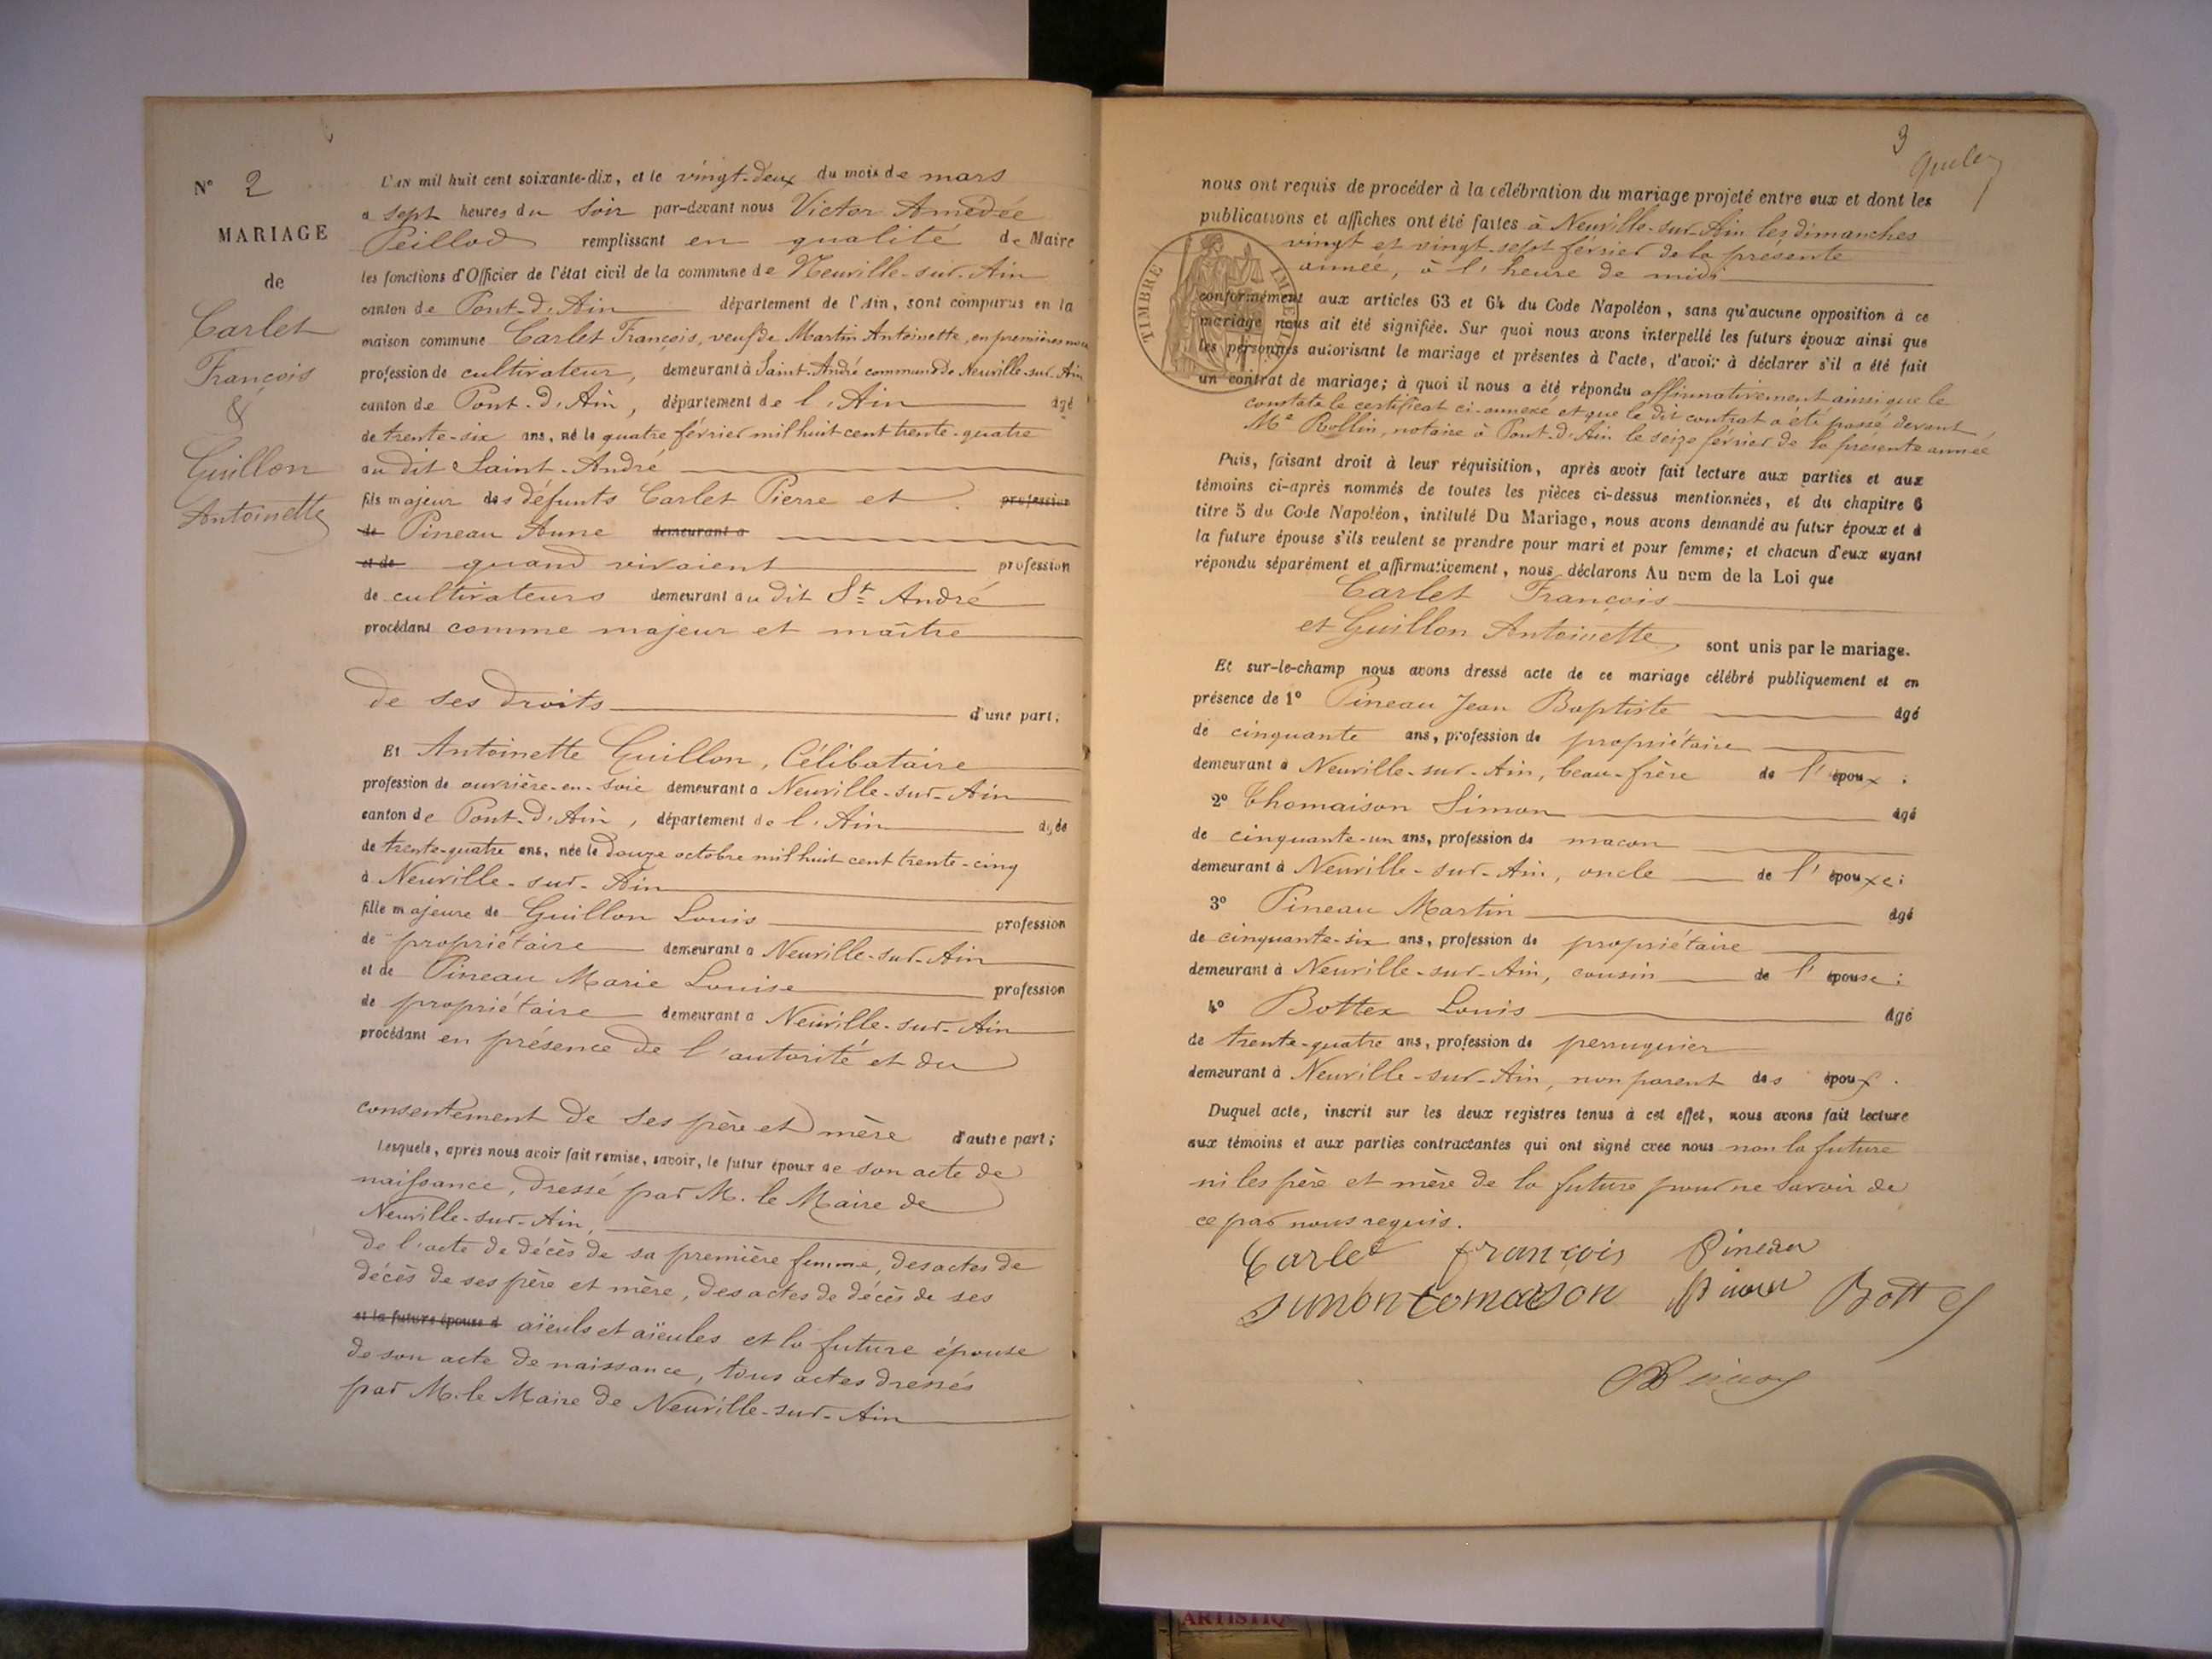 N° 2
MARIAGE
de
Carlet
François
&
Guillon
Antoinette
L'AN mil huit cent soixante-dix, et le vingt-deux du mois de mars
a sept heures du soir par-devant nous Victor Amedée
Peillod remplissant en qualité de Maire
les fonctions d'Officier de l'état civil de la commune de Neuville-sur-Ain
canton de Pont-d'Ain département de l'Ain, sont comparus en la
maison commune Carlet François, veuf de Martin Antoinette, en premières
profession de cultivateur, demeurant à Saint-André commune de Neuville-sur-Ain
canton de Pont-d'Ain, département de l'Ain âgé
de trente-six ans, né le quatre février mil huit cent trente-quatre
au dit Saint-André
fils majeur des défunts Carlet Pierre et profession
de Pineau Anne demeurant a
et de quand vivaient profession
de cultivateurs demeurant au dit St André
procédant comme majeur et maître
de ses droits d'une part;
Et Antoinette Guillon, Célibataire
profession de ouvrière-en-soie demeurant a Neuville-sur-Ain
canton de Pont-d'Ain, département de l'Ain âgée
de trente-quatre ans, née le douze octobre mil huit cent trente-cinq
à Neuville-sur-Ain
fille majeure de Guillon Louis profession
de propriétaire demeurant a Neuville-sur-Ain
et de Pineau Marie Louise profession
de propriétaire demeurant a Neuville-sur-Ain
procédant en présence de l'autorité et du
consentement de ses père et mère d'autre part;
Lesquels, après nous avoir fait remise, savoir, le futur époux de son acte de
naissance, dressé par M. le Maire de
Neuville-sur-Ain,
de l'acte de décès de sa première femme, des actes de
décès de ses père et mère, des actes de décès de ses
et la future épouse d aïeuls et aïeules et la future épouse
de son acte de naissance, tous actes dressés
par M. le Maire de Neuville-sur-Ain
3
nous ont requis de procéder à la célébration du mariage projeté entre eux et dont les
publications et affiches ont été faites à Neuville-sur-Ain les dimanches
vingt et vingt-sept février de la présente
année, à l'heure de midi
TIMBRE
conformément aux articles 63 et 64 du Code Napoléon, sans qu'aucune opposition à ce
mariage nous ait été signifiée. Sur quoi nous avons interpellé les futurs époux ainsi que
les personnes autorisant le mariage et présentes à l'acte, d'avoir à déclarer s'il a été fait
un contrat de mariage; à quoi il nous a été répondu affirmativement ainsi que le
constate le certificat ci-annexé et que le dit contrat a été passé devant
Me Rollin, notaire à Pont-d'Ain le seize février de la présente année
Puis, faisant droit à leur réquisition, après avoir fait lecture aux parties et aux
témoins ci-après nommés de toutes les pièces ci-dessus mentionnées, et du chapitre 6
titre 5 du Code Napoléon, intitulé Du Mariage, nous avons demandé au futur époux et à
la future épouse s'ils veulent se prendre pour mari et pour femme; et chacun d'eux ayant
répondu séparément et affirmativement, nous déclarons Au nom de la Loi que
Carlet François
et Guillon Antoinette, sont unis par le mariage.
Et sur-le-champ nous avons dressé acte de ce mariage célébré publiquement et en
présence de 1° Pineau Jean Baptiste âgé
de cinquante ans, profession de propriétaire
demeurant à Neuville-sur-Ain, beau-frère de l'époux;
2° Thomaison Simon âgé
de cinquante-un ans, profession de macon
demeurant à Neuville-sur-Ain, oncle de l'épouxe;
3° Pineau Martin âgé
de cinquante-six ans, profession de propriétaire
demeurant à Neuville-sur-Ain, cousin de l'épouse;
4° Bottex Louis âgé
de trente-quatre ans, profession de perruquier
demeurant à Neuville-sur-Ain, non parent des époux.
Duquel acte, inscrit sur les deux registres tenus à cet effet, nous avons fait lecture
aux témoins et aux parties contractantes qui ont signé avec nous non la future
ni les père et mère de la future pour ne savoir de
ce par nous requis.
Carlet françois Pineau
simon tomaison Bottex
ARTISTIQ